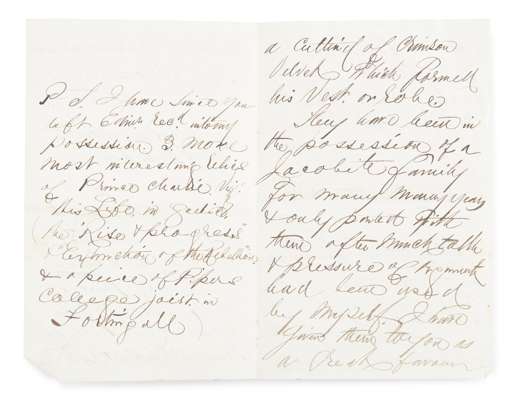 P. S. I have since you
left Edinr Recd into my
possession 3 more
most interesting relics
of Prince Charlie Viz.
& his Life in Gaelic
(the "Rise & progress"
& Extinction of the Rebellion)
& a piece of Pipers
College joist in
Fortingall
a cutting of Crimson
Velvet which formed
his Vest. or Robe
They have been in
the possession of a
Jacobite family
for many many years
& only parted with
them after much talk
& pressure of Argument
had been used
by myself I have
given them to you as
a Great favour